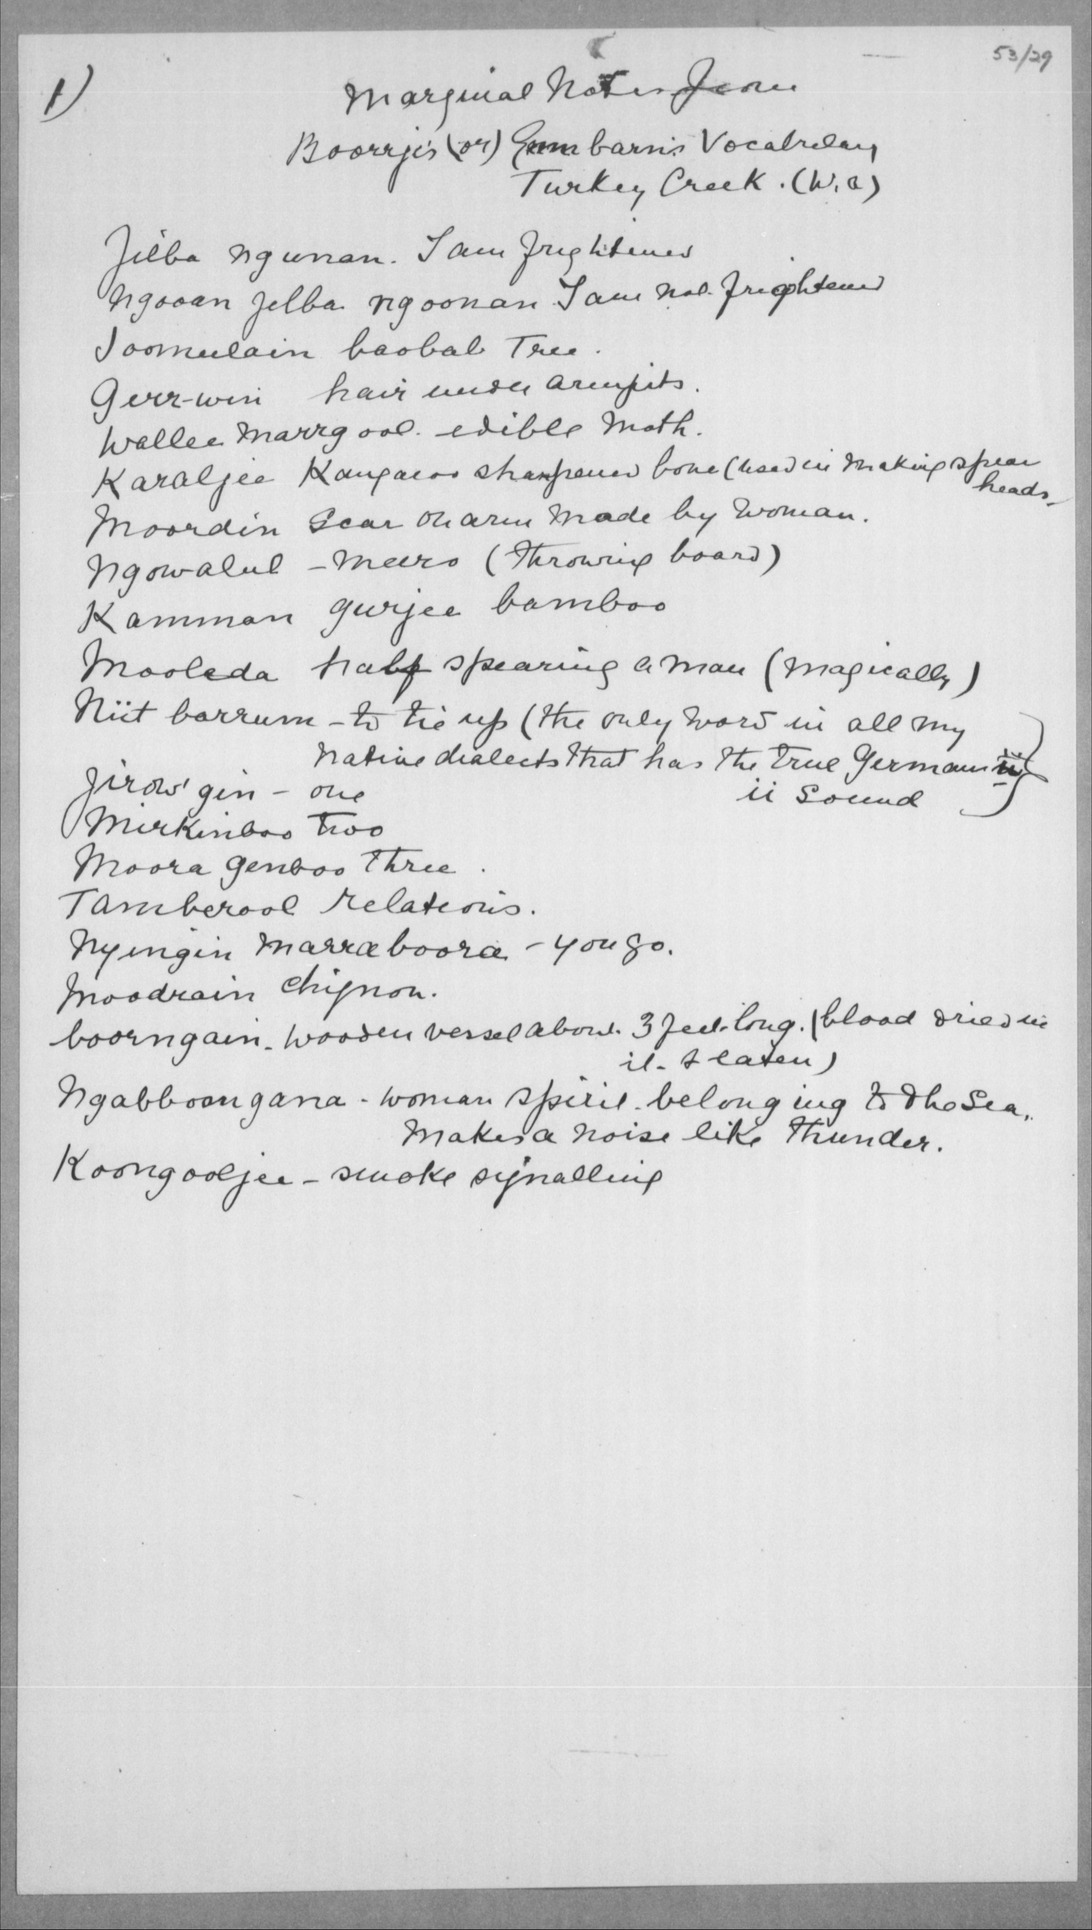 53/29
1)
Marginal Notes from
Boorrji's (or) Gumbarni's Vocabulary
Turkey Creek. (W.A)
Jilba ngunan. I am frightened
Ngooan jelba ngoonan I am not frightened
Joomulain baobab Tree.
Gerr-win hair under armpits.
Wallee Marrgool. edible Moth.
Karaljee Kangaroo sharpened bone (used in making spear
heads.
Moordin Scar on arm made by woman.
Ngowalul - Meero (throwing board)
Kamman gurjee bamboo
Mooleda half spearing a man (magically)
Niit barrum - to tie up (the only word in all my
native dialects that has the True German ü
ü sound)
Jirow gin - one
Mirkinboo Two
Moora genboo three.
Tamberool relations.
Nyingin marraboora - you go.
Moodrain chignon.
boorngain. wooden vessel about 3 feet long. (blood dried in
it & eaten)
Ngabboongana - woman spirit belonging to the Sea.
Makes a noise like thunder.
Koongooljee - smoke signalling